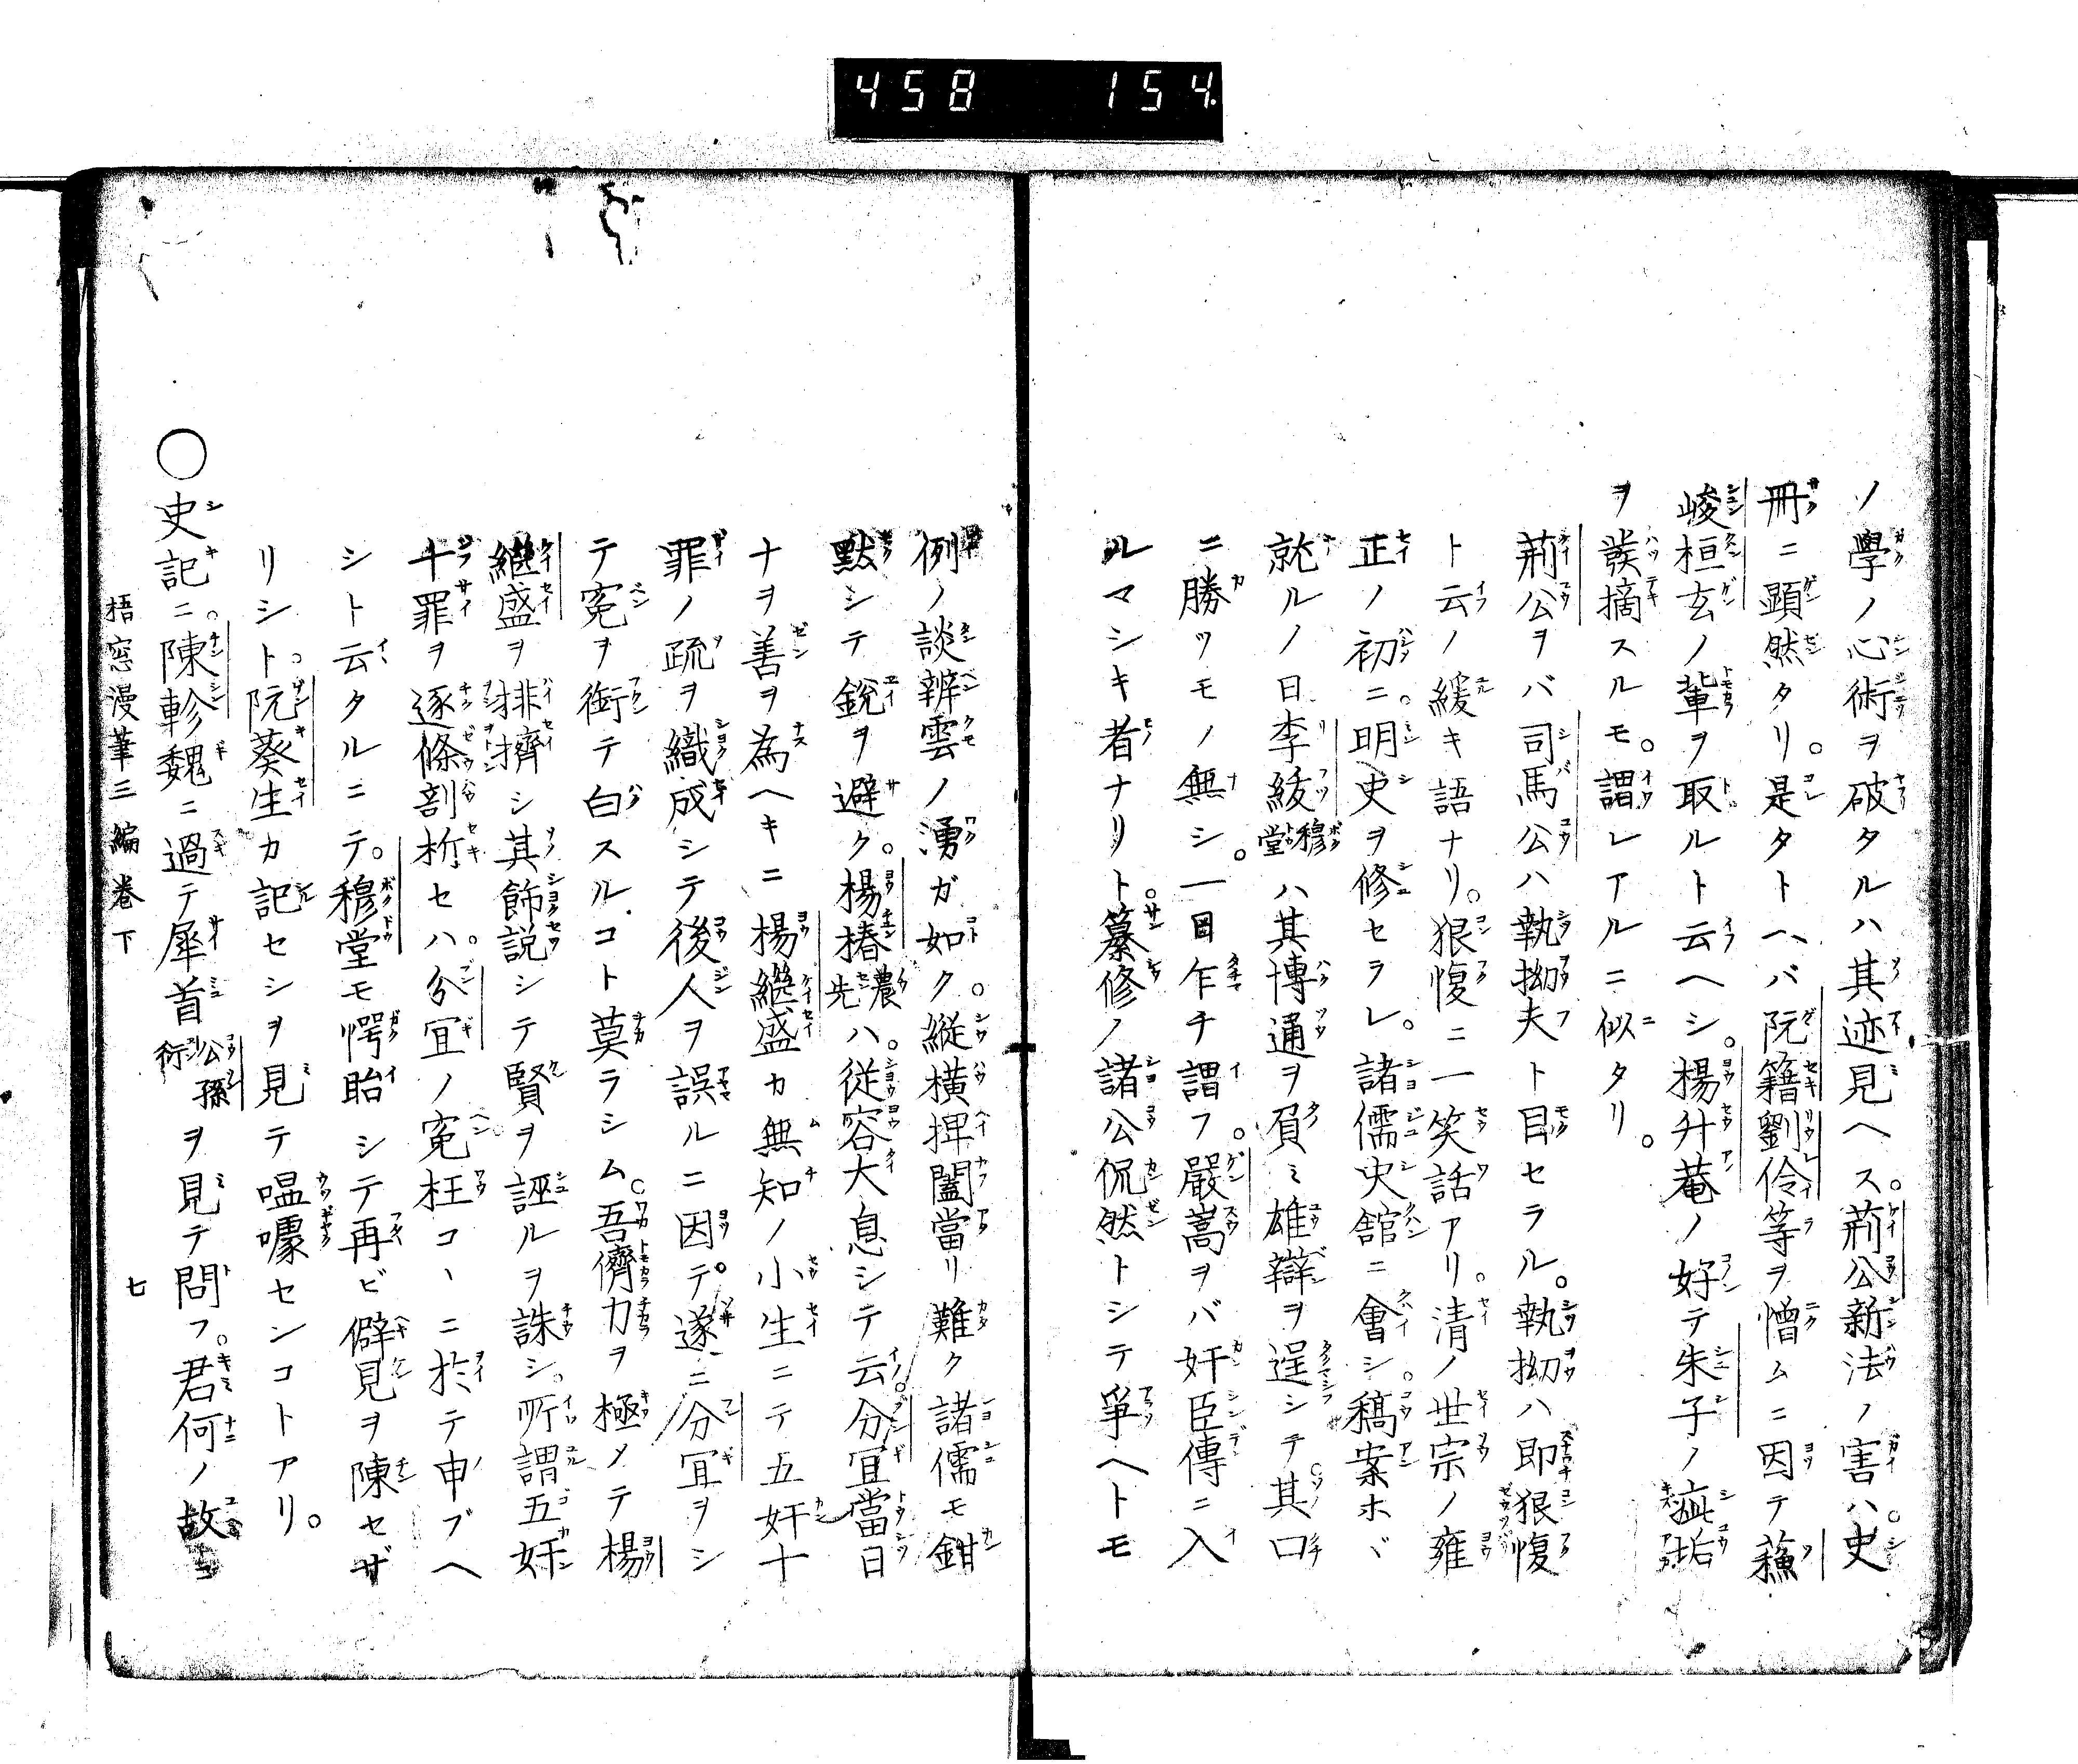 458 154.
ノ學ノ心術ヲ破タルハ其迹見ヘス。荊公新法ノ害ハ。史
冊ニ顕然タリ。是タトヘバ阮籍劉伶等ヲ憎ムニ因テ蘓
峻桓玄ノ輩ヲ取ルト云ヘシ。楊升菴ノ好テ朱子ノ疵垢
ヲ發摘スルモ。謂レアルニ似タリ。
荊公ヲバ司馬公ハ執拗夫ト目セラル。執拗ハ即狠愎
ト云ノ緩キ語ナリ。狠愎ニ一笑話アリ。清ノ世宗ノ雍
正ノ初ニ。明史ヲ修セラレ。諸儒史舘ニ會シ。稿案ホヾ
就ルノ日李紱穆堂ハ其博通ヲ負ミ雄辯ヲ逞シテ。其口
ニ勝ツモノ無シ。一日乍チ謂フ。嚴嵩ヲバ奸臣傳ニ入
ルマシキ者ナリト。纂修ノ諸公侃然トシテ爭ヘトモ
例ノ談辨雲ノ湧ガ如ク。縦横捭闔當リ難ク諸儒モ鉗
黙シテ鋭ヲ避ク。楊椿農先ハ。従容大息シテ云。分宜當日
ナヲ善ヲ為ヘキニ楊継盛カ無知ノ小生ニテ五奸十
罪ノ疏ヲ織成シテ後人ヲ誤ルニ因テ。遂ニ分宜ヲシ
テ寃ヲ銜テ白スルコト莫ラシム。吾儕力ヲ極メテ楊
継盛ヲ排擠シ其飾説シテ賢ヲ誣ルヲ誅シ。所謂五奸
十罪ヲ逐條剖析セハ。分宜ノ寃枉コヽニ於テ申ブヘ
シト云タルニテ。穆堂モ愕眙シテ再ビ僻見ヲ陳セザ
リシト。阮葵生カ記セシヲ見テ嗢噱センコトアリ。
○史記ニ。陳軫魏ニ過テ犀首公孫衍ヲ見テ問フ。君何ノ故
梧窓漫筆三編巻下 七